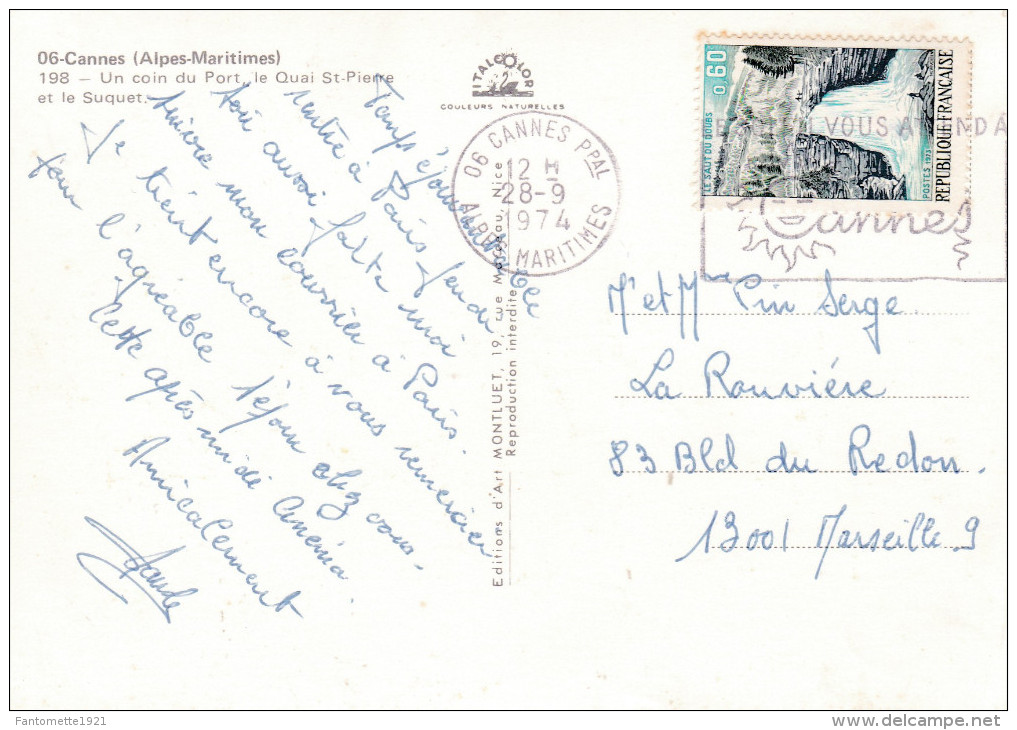 06-Cannes (Alpes-Maritimes)
198 — Un coin du Port, le Quai St-Pierre
et le Suquet.
ITALCOLOR
COULEURS NATURELLES
06 CANNES PPAL
12 H
28-9
1974
ALPES MARITIMES
VOUS ATTEND A
Cannes
0,60
LE SAUT DU DOUBS
POSTES 1973
REPUBLIQUE FRANÇAISE
Temps
rentré à Paris
toi aussi faite moi
suivre mon courrier à Paris.
Je tient encore à vous remercier
pour l'agréable séjour chez vous.
Cette après midi cinéma.
Amicalement
Editions d'Art MONTLUET, 19, rue Marceau, Nice
Reproduction interdite
Mr et Mme Pin Serge.
La Rouvière
83 Bld du Redon.
13001 Marseille 9
Fantometto1921
delcampe.net